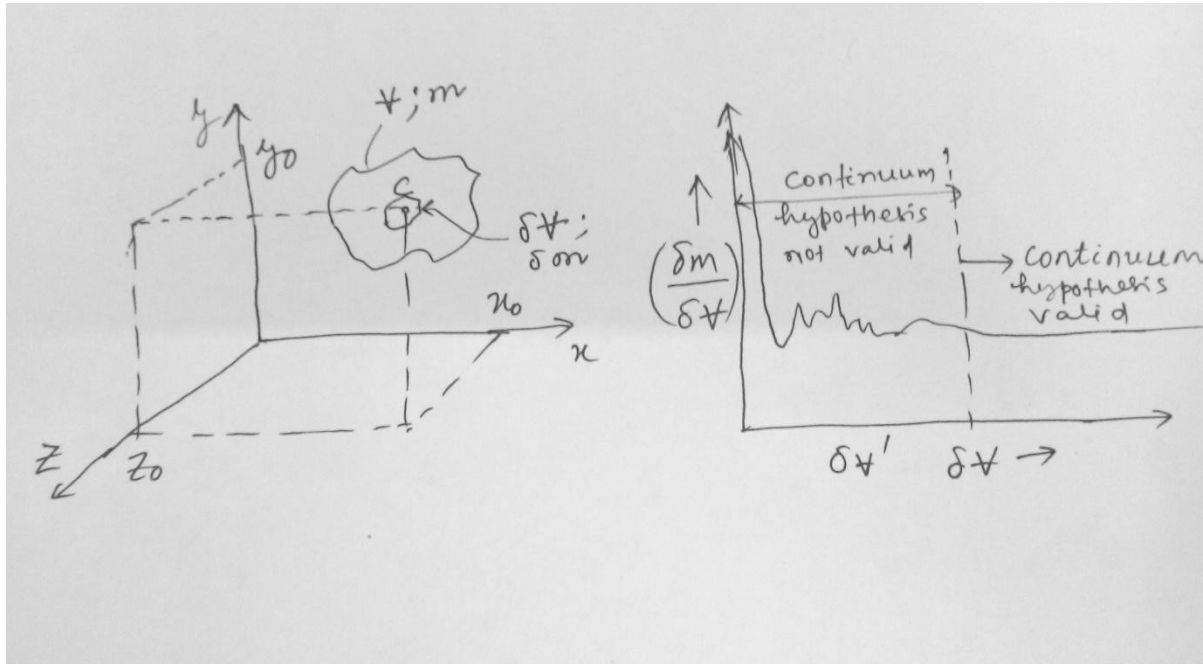 y
y₀
V; m
C
δV;
δm
x₀
x
z
z₀
(δm/δV)
continuum
hypothesis
not valid
continuum
hypothesis
valid
δV'
δV →